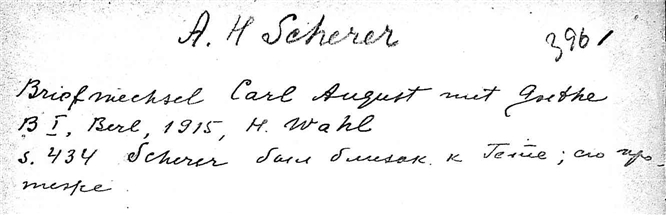 A. H Scherer 3961
Briefwechsel Carl August mit Goethe
B I, Berl, 1915, H. Wahl
s. 434 Scherer был близок к Гете; его про-
теже